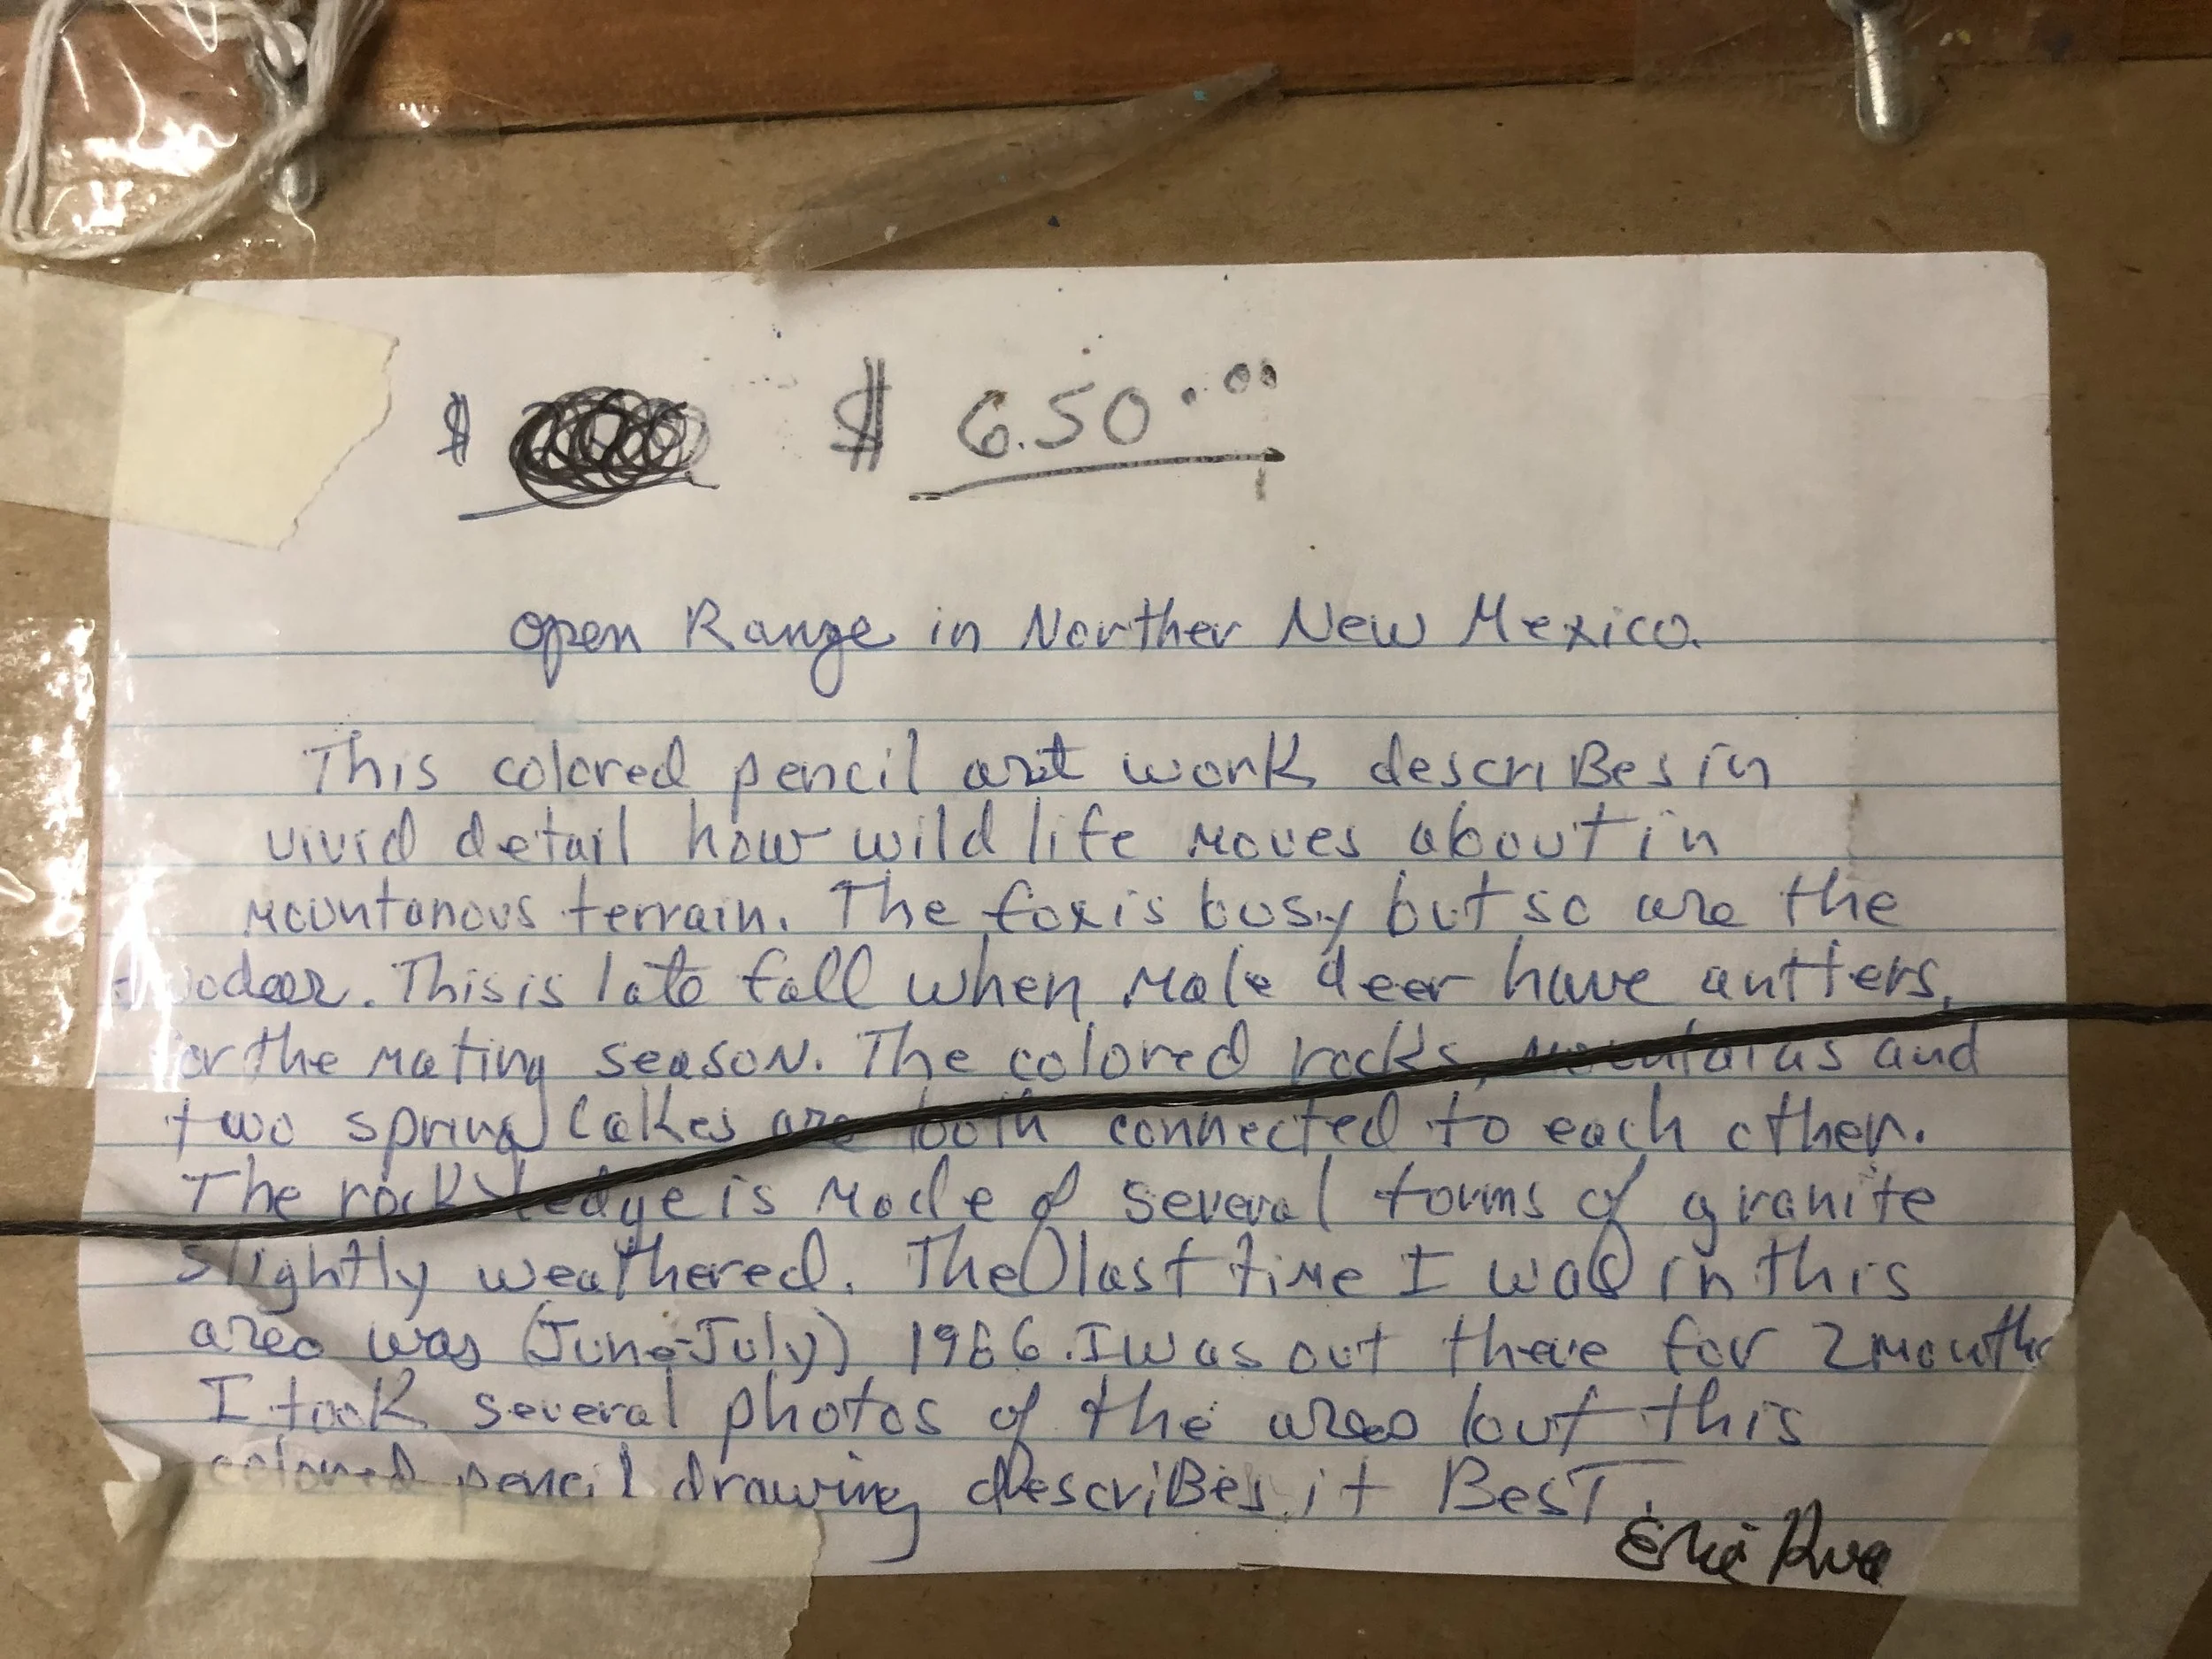 $ $ 6.50.00
open Range in Norther New Mexico.
This colored pencil art work describes in
vivid detail how wild life moves about in
mountanous terrain. The fox is busy but so are the
two deer. This is late fall when male deer have antters,
for the mating season. The colored rocks, mountains and
two spring lakes are both connected to each other.
The rock ledge is made of several forms of granite
slightly weathered. The last time I was in this
area was (June-July) 1986. I was out there for 2 months
I took several photos of the area but this
colored pencil drawing describes it Best.